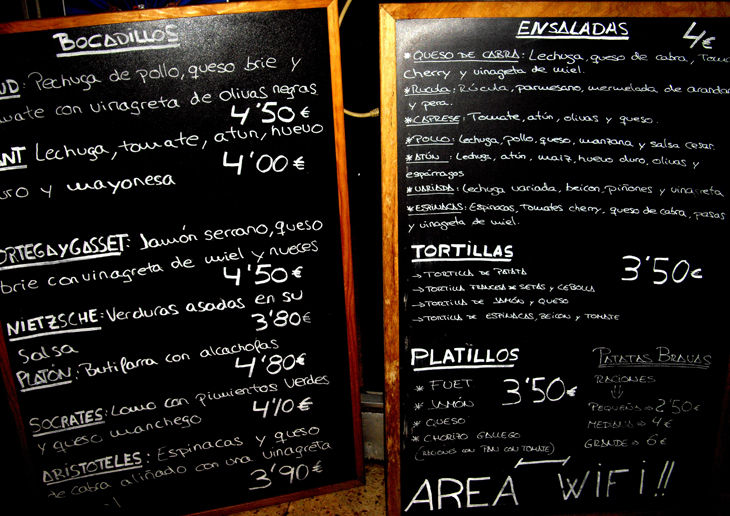 BOCADILLOS
UD: Pechuga de pollo, queso brie y
mate con vinagreta de olivas negras
4'50€
ANT Lechuga, tomate, atun, huevo
uro y mayonesa
4'00€
ORTEGA Y GASSET: Jamón serrano, queso
brie con vinagreta de miel y nueces
4'50€
NIETZSCHE: Verduras asadas en su
salsa
3'80€
PLATÓN: Butifarra con alcachofas
4'80€
SOCRATES: Lomo con pimientos verdes
y queso manchego
4'10€
ARISTOTELES: Espinacas y queso
de cabra aliñado con una vinagreta
3'90€
ENSALADAS 4€
* QUESO DE CABRA: Lechuga, queso de cabra, Tom
cherry y vinagreta de miel.
* RUCULA: Rúcula, parmesano, mermelada de arandan
y pera.
* CAPRESE: Tomate, atún, olivas y queso.
* POLLO: Lechuga, pollo, queso, manzana y salsa cesar.
* ATÚN: Lechuga, atún, maiz, huevo duro, olivas y
espárragos
* VARIADA: Lechuga variada, beicon, piñones y vinagreta
* ESPINACAS: Espinacas, Tomates cherry, queso de cabra, pasas
y vinagreta de miel.
TORTILLAS
3'50€
→ TORTILLA DE PATATA
→ TORTILLA FRANCESA DE SETAS Y CEBOLLA
→ TORTILLA DE JAMÓN Y QUESO
→ TORTILLA DE ESPINACAS, BEICON Y TOMATE
PLATILLOS
3'50€
* FUET
* JAMÓN
* QUESO
* CHORIZO GALLEGO
(RACIONES CON PAN CON TOMATE)
PATATAS BRAVAS
RACIONES
PEQUEÑA → 2'50€
MEDIANA → 4€
GRANDE → 6€
AREA WIFI!!